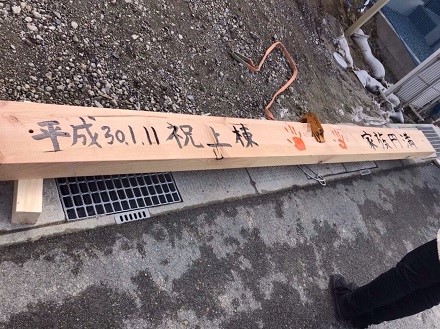 平成30.1.11 祝上棟 家族円満